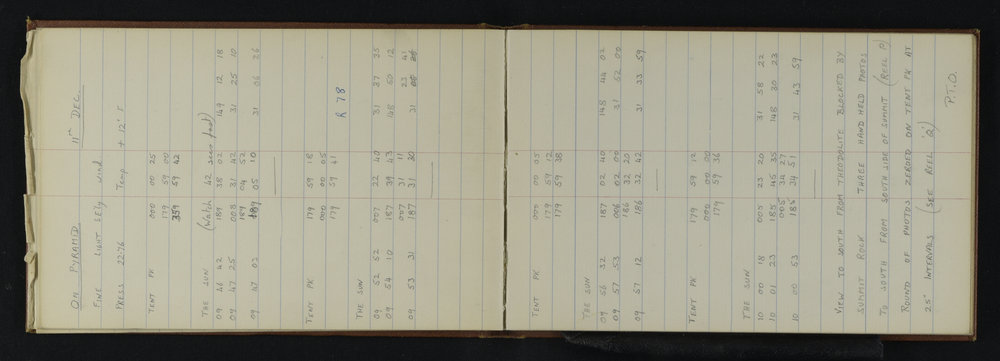 ON PYRAMID. 11th DEC.
FINE LIGHT SELY wind
PRESS 22.76 Temp + 12° F
TENT PK 000 00 25
179 59 00
359 59 42
THE SUN (Watch 42 secs fast)
09 46 42 189 38 02 149 12 18
09 47 25 008 31 42 31 25 10
189 04 52
09 47 03 189 05 10 31 06 26
TENT PK 179 59 18
000 00 05
179 59 41
R 78
THE SUN
09 52 52 007 22 40 31 37 35
09 54 10 187 39 43 148 50 12
007 31 11 23 41
09 53 31 187 31 30 31
TENT PK 000 00 05
179 59 12
179 59 38
THE SUN
09 56 32 187 02 40 148 44 02
09 57 53 006 02 00 31 52 00
186 32 20
09 57 12 186 32 42 31 33 59
TENT PK 179 59 12
000 00 00
179 59 36
THE SUN
10 00 18 005 23 20 31 58 22
10 01 23 185 45 35 148 30 23
005 34 27
10 00 53 185 34 51 31 43 59
VIEW TO SOUTH FROM THEODOLITE BLOCKED BY
SUMMIT ROCK THREE HAND HELD PHOTOS
TO SOUTH FROM SOUTH SIDE OF SUMMIT (REEL P)
ROUND OF PHOTOS ZEROED ON TENT PK AT
25° INTERVALS (SEE REEL 'Q')
P.T.O.